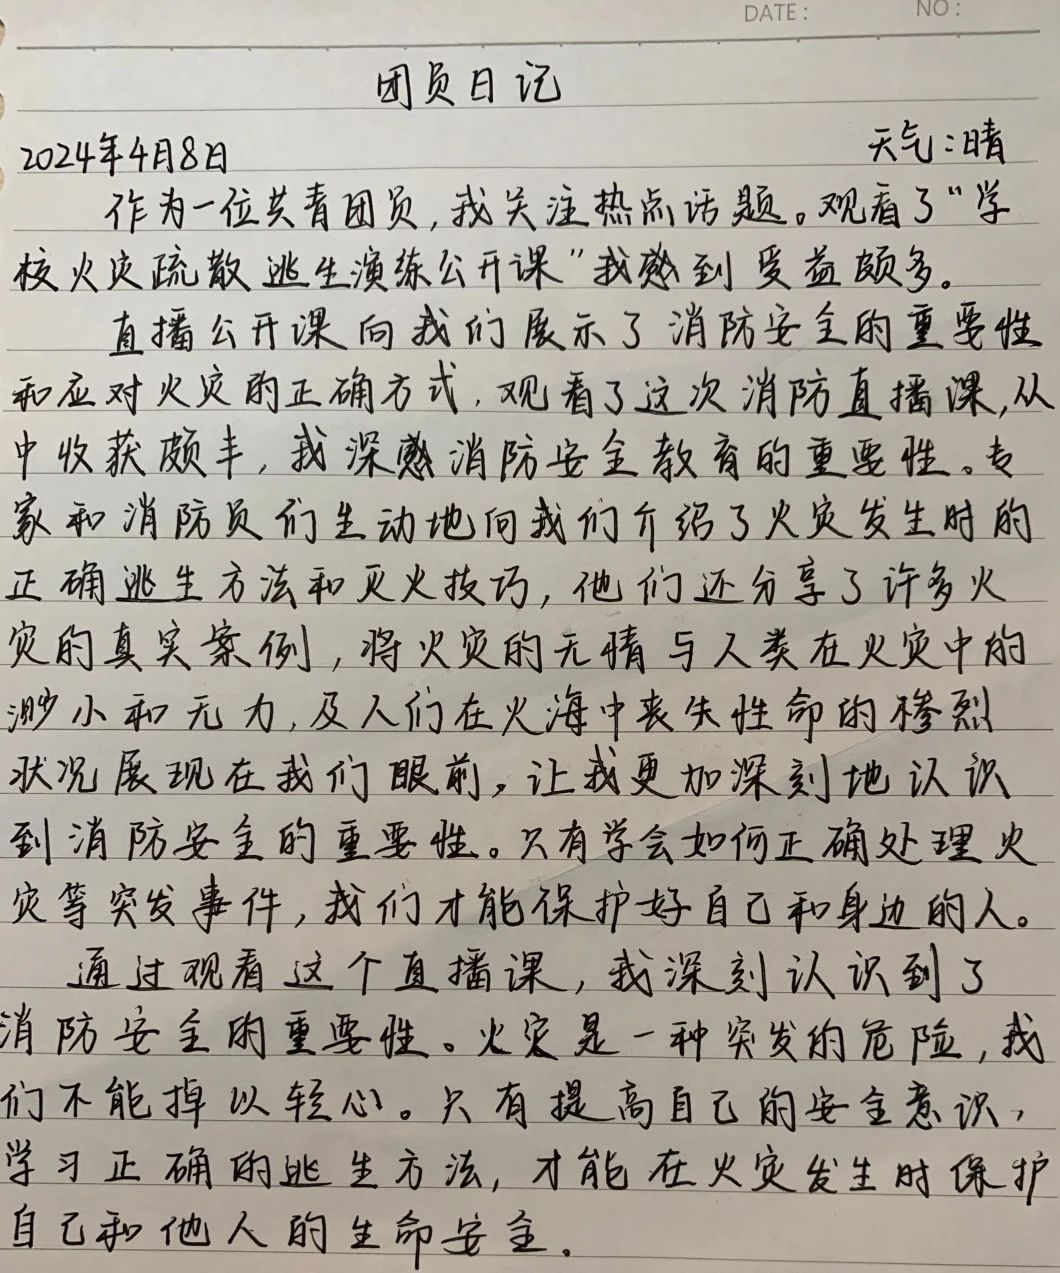 DATE: NO:
团员日记
2024年4月8日 天气:晴
作为一位共青团员,我关注热点话题。观看了“学
校火灾疏散逃生演练公开课”我感到受益颇多。
直播公开课向我们展示了消防安全的重要性
和应对火灾的正确方式,观看了这次消防直播课,从
中收获颇丰,我深感消防安全教育的重要性。专
家和消防员们生动地向我们介绍了火灾发生时的
正确逃生方法和灭火技巧,他们还分享了许多火
灾的真实案例,将火灾的无情与人类在火灾中的
渺小和无力,及人们在火海中丧失性命的惨烈
状况展现在我们眼前,让我更加深刻地认识
到消防安全的重要性。只有学会如何正确处理火
灾等突发事件,我们才能保护好自己和身边的人。
通过观看这个直播课,我深刻认识到了
消防安全的重要性。火灾是一种突发的危险,我
们不能掉以轻心。只有提高自己的安全意识,
学习正确的逃生方法,才能在火灾发生时保护
自己和他人的生命安全。